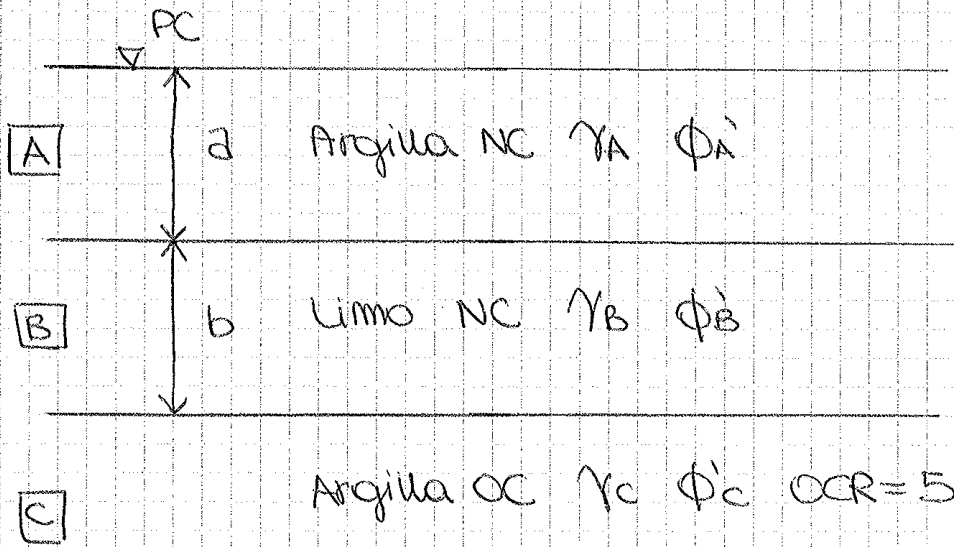 PC
A a Argilla NC γA ϕA'
B b Limo NC γB ϕB'
C Argilla OC γC ϕ'C OCR=5